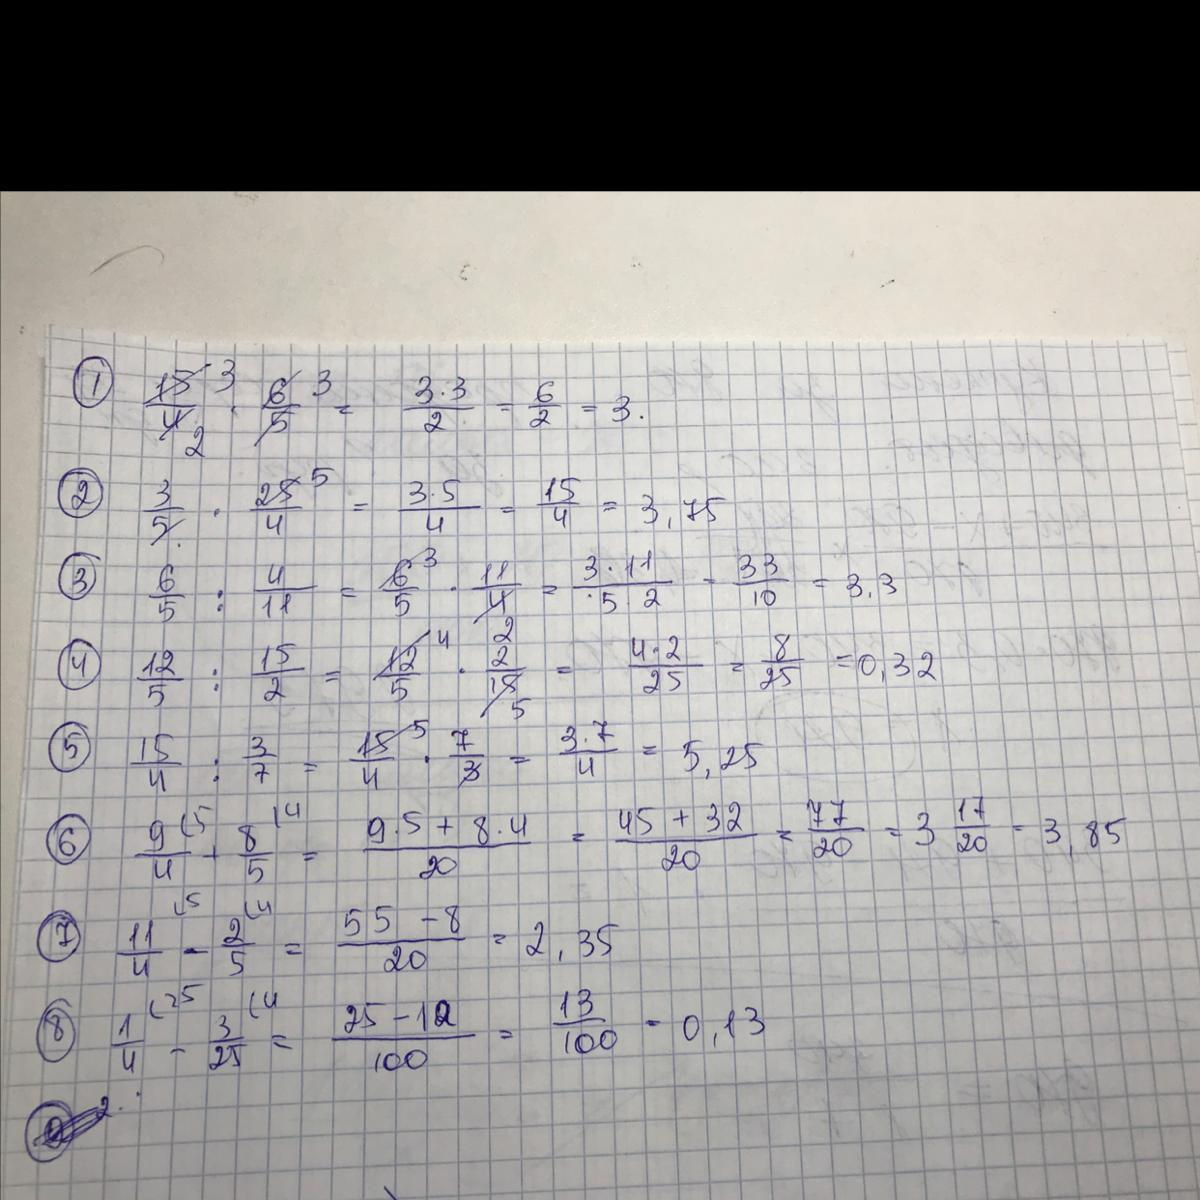 ① 15/4 · 6/5 = 3·3/2 = 6/2 = 3.
② 3/5 · 25/4 = 3·5/4 = 15/4 = 3,75
③ 6/5 : 4/11 = 6/5 · 11/4 = 3·11/5 2 = 33/10 = 3,3
④ 12/5 : 15/2 = 12/5 · 2/15 = 4·2/25 = 8/25 = 0,32
⑤ 15/4 : 3/7 = 15/4 · 7/3 = 3·7/4 = 5,25
⑥ 9/4 + 8/5 = 9·5 + 8·4/20 = 45 + 32/20 = 77/20 = 3 17/20 = 3,85
⑦ 11/4 - 2/5 = 55 - 8/20 = 2,35
⑧ 1/4 - 3/25 = 25 - 12/100 = 13/100 = 0,13